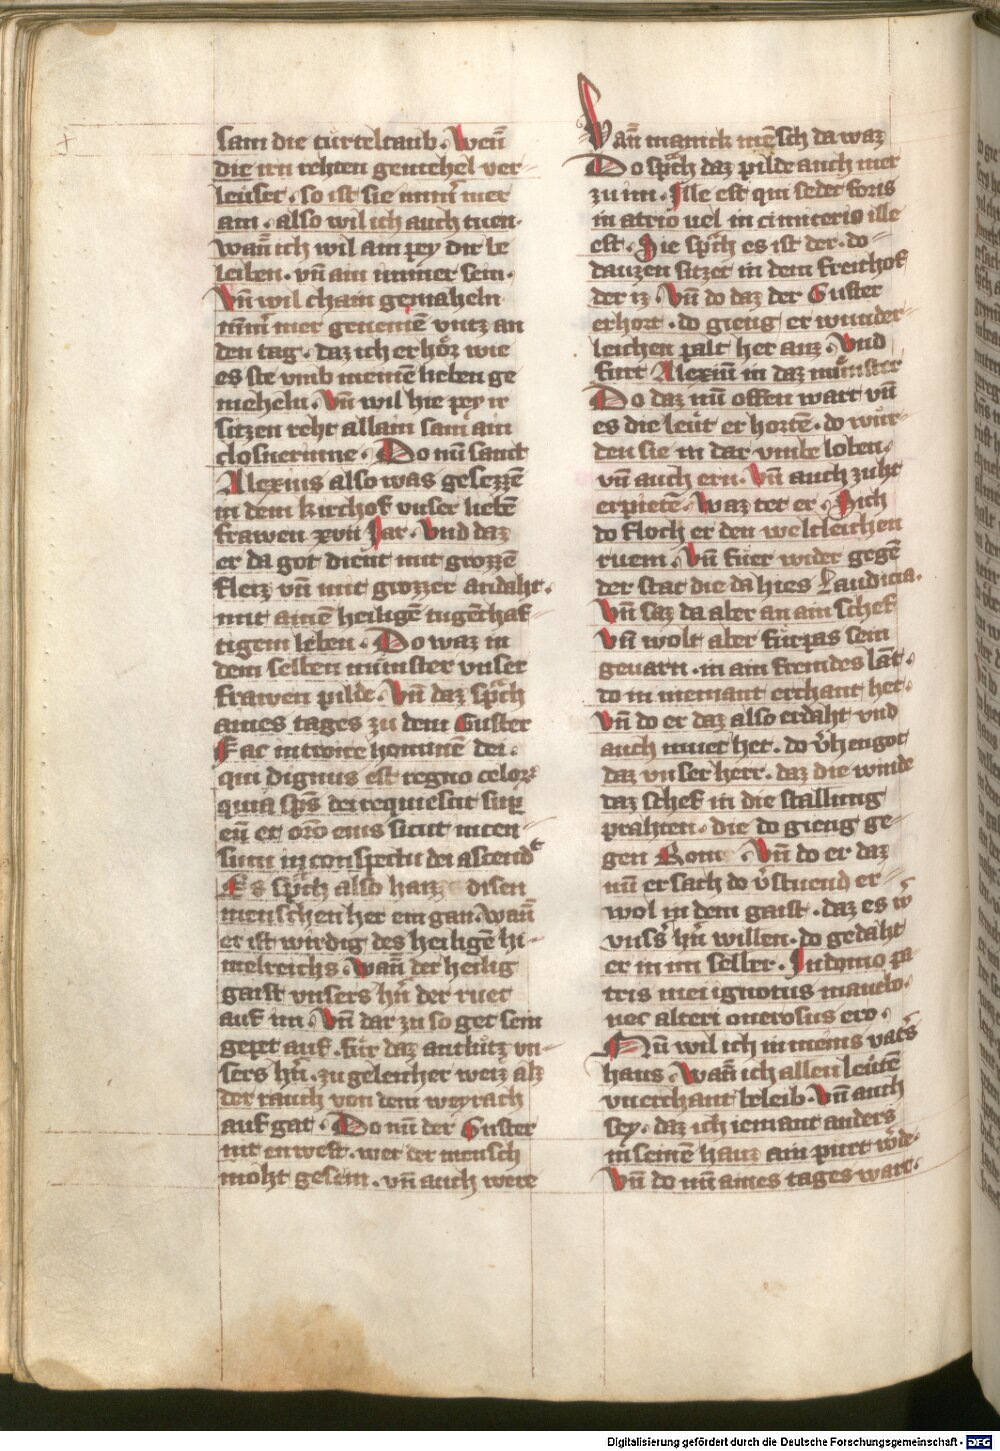 sam die türteltaub. Wenn̄
die irn rehten gemehel ver-
leüset. so ist sie nimm̄ mer
ain. also wil ich auch tuen.
wann̄ ich wil ain pey dir be
leiben. vn̄ ain immer sein.
Vn̄ wil chain gemaheln
nimm̄ mer genemē vntz an
den tag. daz ich erhör wie
es ste vmb meinē lieben ge
meheln. Vn̄ wil hie pey ir
sitzen reht allain sam ain
closnerinne. Do nu̅ sanct
Alexius also was gesezzē
in dem kirchof vnser liebē
frawen xvii Jar. Vnd daz
er da got dient mit grozzē
fleiz vn̄ mit grozzer andaht.
mit ainē heiligē tugēthaf-
tigem leben. Do waz in
dem selben münster vnser
frawen pilde. Vn̄ daz sprͣch
aines tages zu dem Guster
Fac introire hominē dei.
qui dignus est regno celoꝝ
quia sp̄s dei requiescit sup̱
eū et orō eius sicut incen-
sum in conspectu dei ascend͛
Es sprͣch also haiz disen
menschen her ein gan. wann̄
er ist wirdig des heiligē hi-
melreichs. wann̄ der heilig
gaist vnsers hn̄ der ruet
auf im. Vn̄ dar zu so get sein
gepet auf. für daz antlütz vn-
sers hn̄. zu geleicher weiz alz
der rauch von dem weyrach
auf gat. Do nu̅ der Guster
nit enwest. wer der mensch
moht gesein. vn̄ auch were
Wann̄ manick mēsch da waz
Do sprͣch daz pilde auch mer
zu im. Ille est qui sedet foris
in atrio uel in cimiterio ille
est. Sie sprͣch es ist der. do-
dauzen sitzet in dem freithof
der iz. Vn̄ do daz der Guster
erhort. do gieng er wunder-
leichen palt her auz. Vnd
furt Alexiu̅ in daz münster
Do daz nu̅ offen wart vn̄
es die leüt er hortē. do wur-
den sie in dar vmbe loben.
vn̄ auch ern. Vn̄ auch zuht
erpietē. Waz tet er. Sich
do floch er den weltleichen
ruem. Vn̄ fuer wider gegē
der stat die da hies Laudicia.
Vn̄ saz da aber an ain schef
Vn̄ wolt aber fürpas sein
geuarn. in ain fremdes lāt.
do in niemant erchant het.
Vn̄ do er daz also erdaht vnd
auch muet het. do v͛hengot
daz vnser herr. daz die winde
daz schef in die stallung
prahten. die do gieng ge-
gen Rom. Vn̄ do er daz
nu̅ ersach do v͛stuend er-
wol in dem gaist. daz es w͛
vns͛s hn̄ willen. do gedaht
er in im selber. In domo pa
tris mei ignotus manebo.
nec alteri onerosus ero.
Nu̅ wil ich in meins vat͛s
haus. Wann̄ ich allen leütē
vnerchant beleib. Vn̄ auch
sey. daz ich iemant anders
in seinē hauz ain purt w͛de.
Vn̄ do nu̅ aines tages wart.
Digitalisierung gefördert durch die Deutsche Forschungsgemeinschaft - DFG